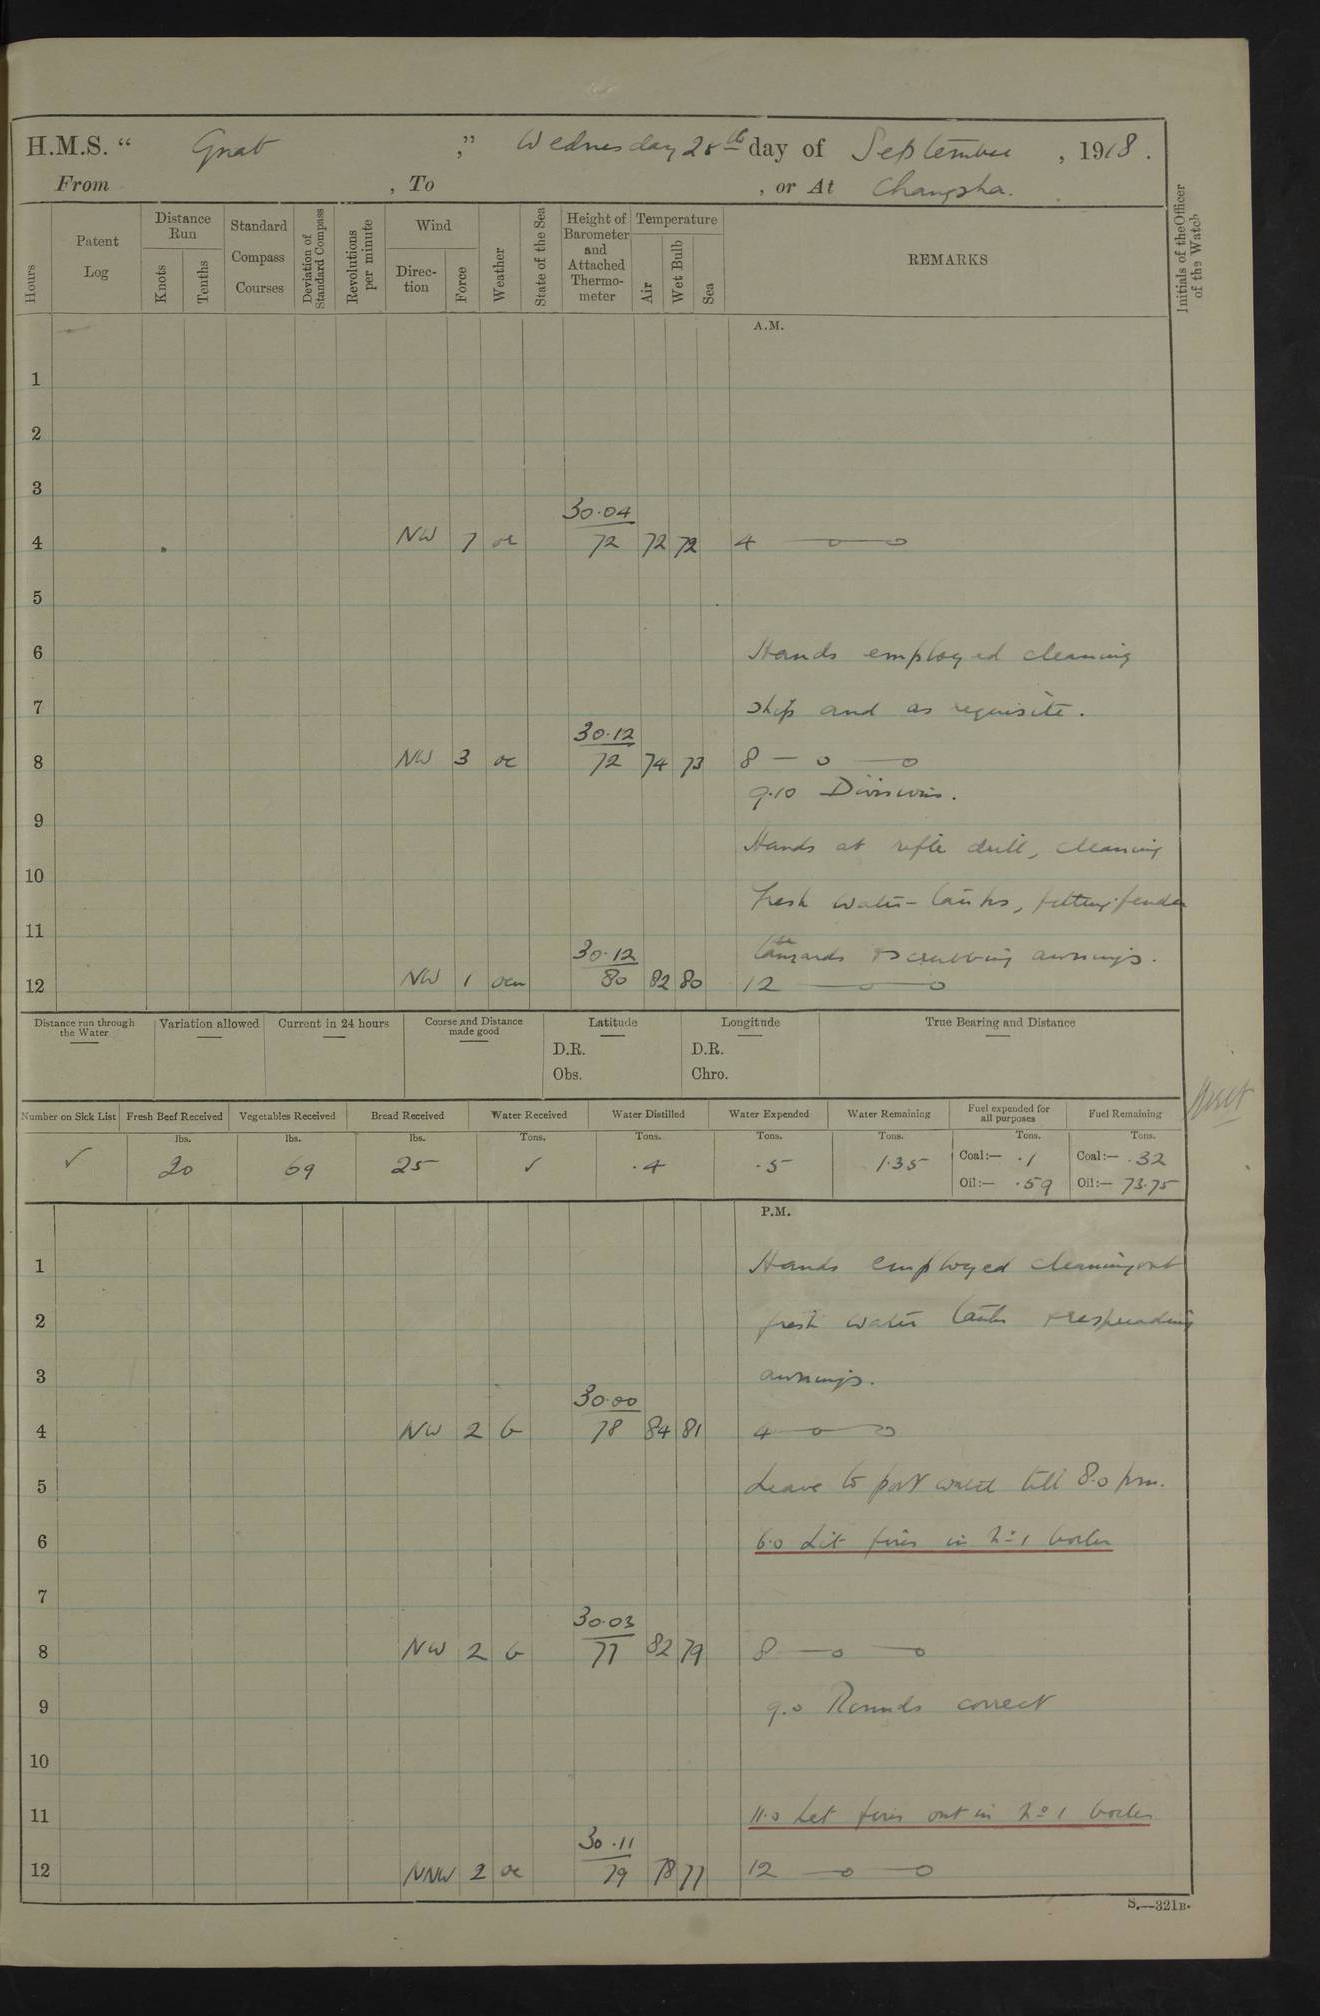 H.M.S. “ Gnat ,” Wednesday 25th day of September , 1918.
From , To , or At Changsha.
Hours
Patent Log
Distance Run
Knots
Tenths
Standard Compass Courses
Deviation of Standard Compass
Revolutions per minute
Wind
Direction
Force
Weather
State of the Sea
Height of Barometer and Attached Thermometer
Temperature
Air
Wet Bulb
Sea
REMARKS
Initials of the Officer of the Watch
A.M.
1
2
3
30.04
4 NW 1 oc 72 72 72 4
5
6 Hands employed cleaning
7 ship and as requisite.
30.12
8 NW 3 oc 72 74 73 8
9.10 Divisions.
9
Hands at rifle drill, cleaning
10
fresh water tanks, fitting fender
11
30.12 lanyards & scrubbing awnings.
12 NW 1 80 82 80 12
Distance run through the Water
Variation allowed
Current in 24 hours
Course and Distance made good
Latitude
D.R.
Obs.
Longitude
D.R.
Chro.
True Bearing and Distance
Number on Sick List Fresh Beef Received Vegetables Received Bread Received Water Received Water Distilled Water Expended Water Remaining Fuel expended for all purposes Fuel Remaining
lbs. lbs. lbs. Tons. Tons. Tons. Tons. Tons. Tons.
✓ 20 69 25 ✓ .4 .5 1.35 Coal:— .1 Coal:— .32
Oil:— .59 Oil:— 73.75
P.M.
1 Hands employed cleaning out
2 fresh water tanks
3 awnings.
30.00
4 NW 2 b 78 84 81 4
5 Leave to port watch till 8.0 pm.
6 6.0 Lit fires in No 1 boiler
7
30.03
8 NW 2 b 77 82 79 8
9 9.0 Rounds correct
10
11 11.0 Let fires out in No 1 boiler
30.11
12 NNW 2 oc 79 78 77 12
S.—321B.